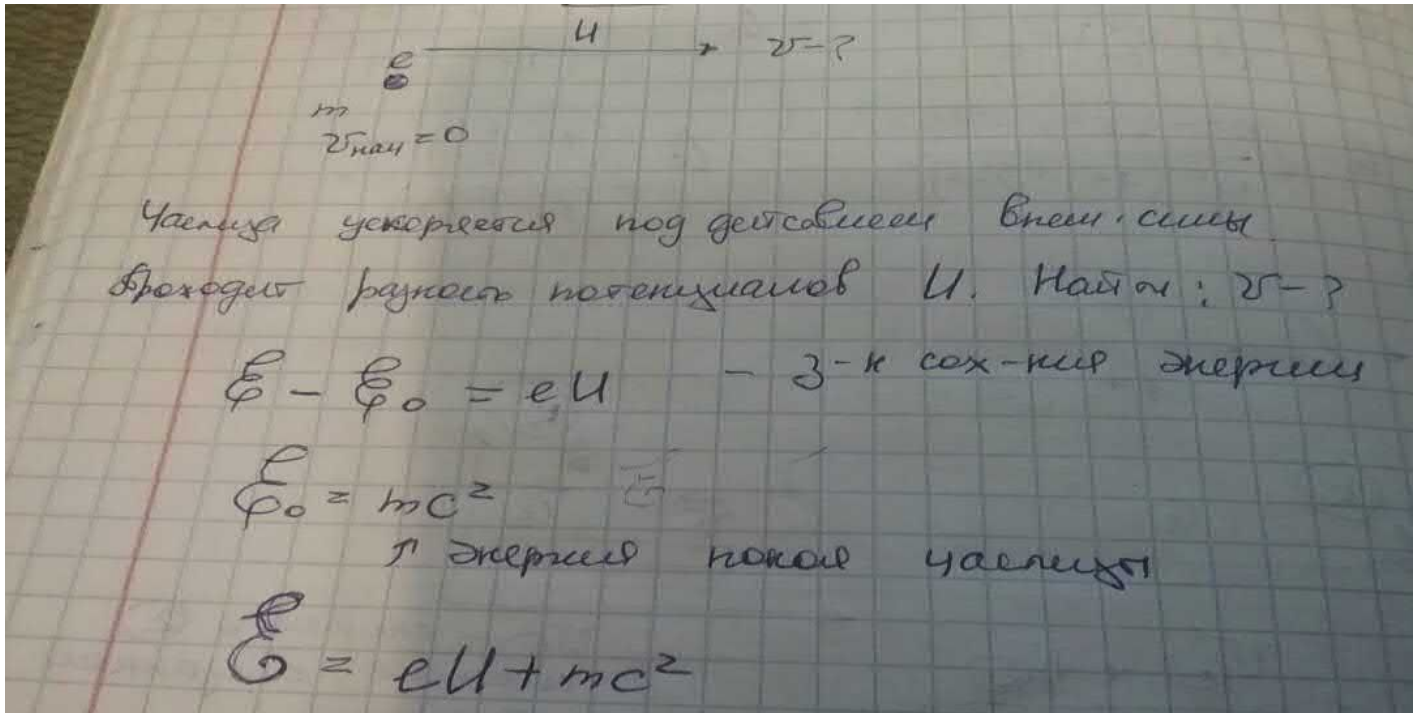 U
e v-?
m
v нач = 0
Частица ускоряется под действием внеш. силы.
Проходит разность потенциалов U. Найти: v-?
ℰ - ℰ₀ = eU - З-н сох-ния энергии
ℰ₀ = mc²
↑ энергия покоя частицы
ℰ = eU + mc²